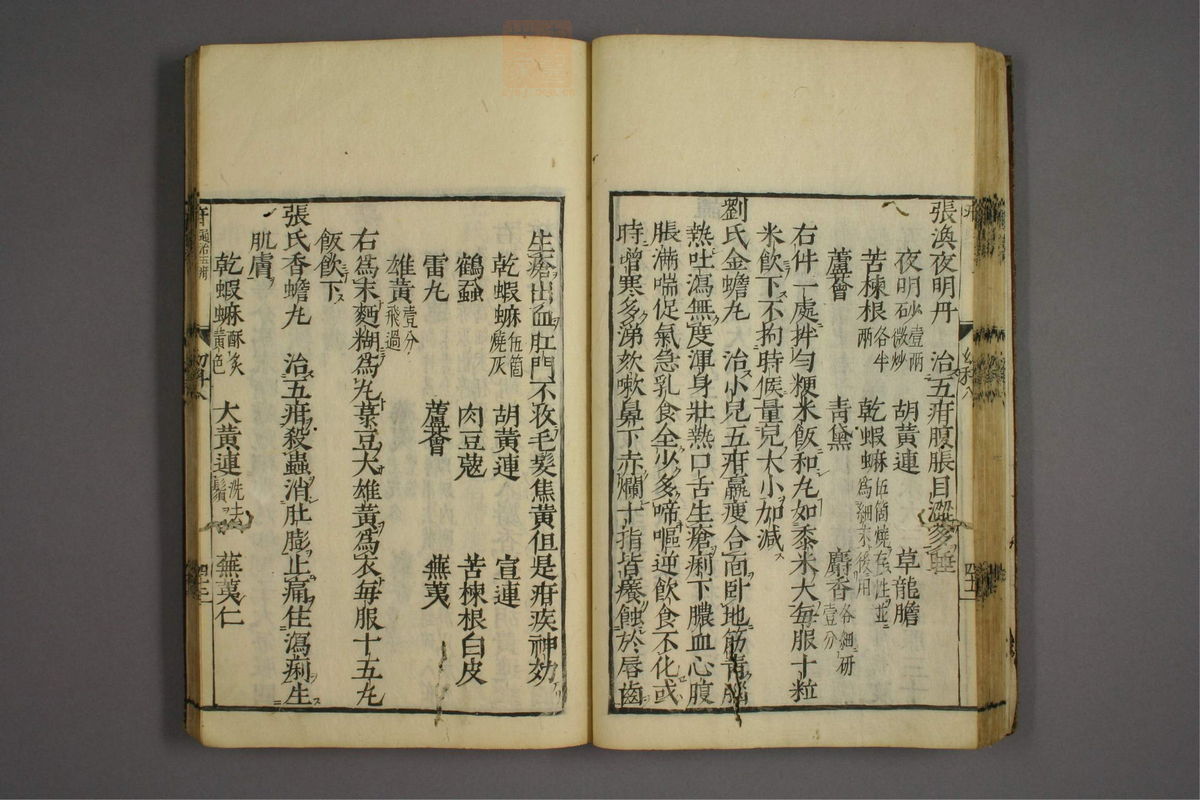 張渙夜明丹　治五疳腹脹目澁多睡
夜明砂壹兩微炒　胡黄連　草龍膽
苦楝根各半兩　乾蝦蟆伍箇燒存性並爲細末後用
蘆薈　青黛　麝香各細研壹分
右件一處拌勻粳米飯和丸如黍米大毎服十粒
米飲下不拘時候量兒大小加減
劉氏金蟾丸　治小兒五疳羸瘦合面卧地筋青腦
熱吐瀉無度渾身壯熱口舌生瘡痢下膿血心腹
脹滿喘促氣急乳食全少多啼嘔逆飲食不化或
時增寒多涕欬嗽鼻下赤爛十指皆癢蝕於唇齒
生瘡出血肛門不收毛髮焦黄但是疳疾神効
乾蝦蟆伍箇燒灰　胡黄連　宣連
鶴蝨　肉豆蔻　苦楝根白皮
雷丸　蘆薈　蕪荑
雄黄壹分飛過
右爲末麪糊爲丸菉豆大雄黄爲衣毎服十五丸
飯飲下
張氏香蟾丸　治五疳殺蟲消肚膨止痛住瀉痢生
肌膚
乾蝦蟆酥炙黄色　大黄連洗去鬚　蕪荑仁